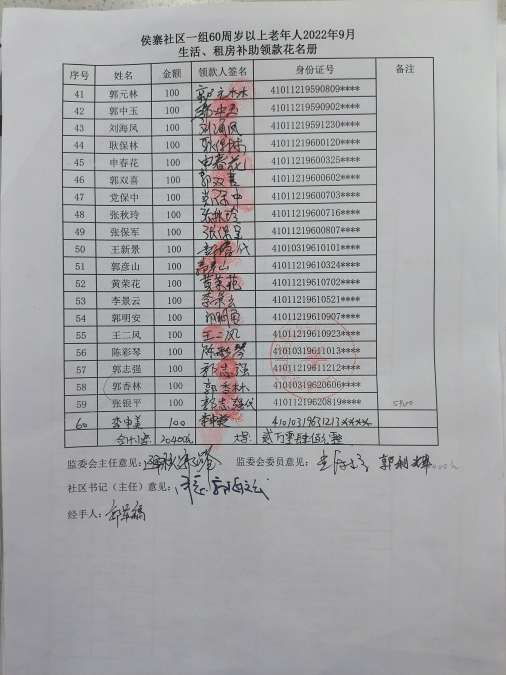 侯寨社区一组60周岁以上老年人2022年9月
生活、租房补助领款花名册
序号 姓名 金额 领款人签名 身份证号 备注
41 郭元林 100 郭元林 41011219590809****
42 郭中玉 100 郭中玉 41011219590902****
43 刘海凤 100 刘海凤 41011219591230****
44 耿保林 100 41011219600120****
45 申春花 100 申春花 41011219600325****
46 郭双喜 100 郭双喜 41011219600602****
47 党保中 100 党保中 41011219600703****
48 张秋玲 100 张秋玲 41011219600716****
49 张保军 100 张保军 41011219600807****
50 王新景 100 41010319610101****
51 郭彦山 100 41011219610324****
52 黄荣花 100 黄荣花 41011219610702****
53 李景云 100 李景云 41011219610521****
54 郭明安 100 41011219610907****
55 王二凤 100 王二凤 41011219610923****
56 陈彩琴 100 陈彩琴 41010319611013****
57 郭志强 100 郭志强 41011219611212****
58 郭香林 100 郭香林 41010319620606****
59 张银平 100 41011219620819****
60 李中美 100 41010319631213****
合计: 20400元 大写:
监委会主任意见: 监委会委员意见:
社区书记（主任）意见:
经手人: